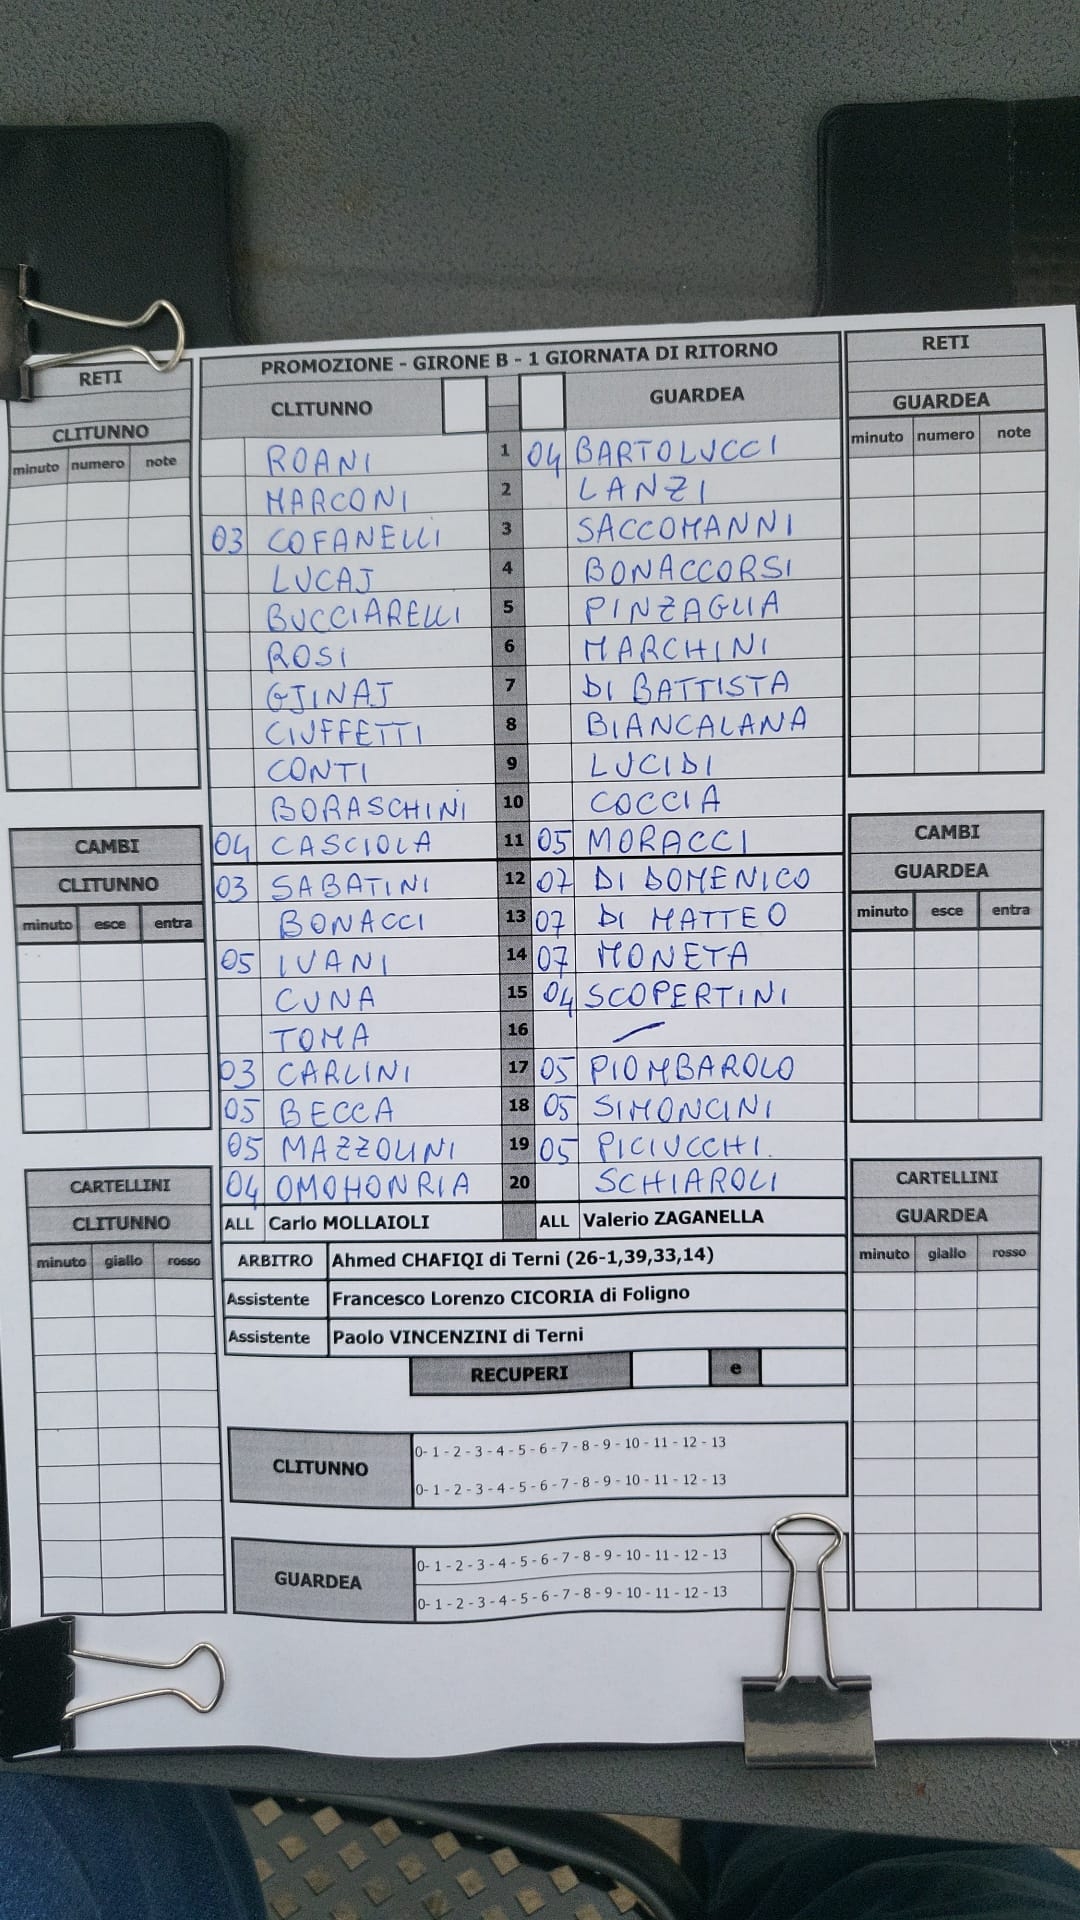 PROMOZIONE - GIRONE B - 1 GIORNATA DI RITORNO
RETI
CLITUNNO
minuto numero note
CLITUNNO
GUARDEA
RETI
GUARDEA
minuto numero note
ROANI 1 04 BARTOLUCCI
MARCONI 2 LANZI
03 COFANELLI 3 SACCOMANNI
LUCAJ 4 BONACCORSI
BUCCIARELLI 5 PINZAGLIA
ROSI 6 MARCHINI
GJINAJ 7 DI BATTISTA
CIUFFETTI 8 BIANCALANA
CONTI 9 LUCIDI
BORASCHINI 10 COCCIA
04 CASCIOLA 11 05 MORACCI
03 SABATINI 12 07 DI DOMENICO
BONACCI 13 07 DI MATTEO
05 IVANI 14 07 MONETA
CUNA 15 04 SCOPERTINI
TOMA 16 —
03 CARLINI 17 05 PIOMBAROLO
05 BECCA 18 05 SIMONCINI
05 MAZZOLINI 19 05 PICIUCCHI.
04 OMOHONRIA 20 SCHIAROLI
ALL Carlo MOLLAIOLI ALL Valerio ZAGANELLA
ARBITRO Ahmed CHAFIQI di Terni (26-1,39,33,14)
Assistente Francesco Lorenzo CICORIA di Foligno
Assistente Paolo VINCENZINI di Terni
RECUPERI e
CAMBI
CLITUNNO
minuto esce entra
CAMBI
GUARDEA
minuto esce entra
CARTELLINI
CLITUNNO
minuto giallo rosso
CARTELLINI
GUARDEA
minuto giallo rosso
CLITUNNO
0- 1 - 2 - 3 - 4 - 5 - 6 - 7 - 8 - 9 - 10 - 11 - 12 - 13
0- 1 - 2 - 3 - 4 - 5 - 6 - 7 - 8 - 9 - 10 - 11 - 12 - 13
GUARDEA
0- 1 - 2 - 3 - 4 - 5 - 6 - 7 - 8 - 9 - 10 - 11 - 12 - 13
0- 1 - 2 - 3 - 4 - 5 - 6 - 7 - 8 - 9 - 10 - 11 - 12 - 13